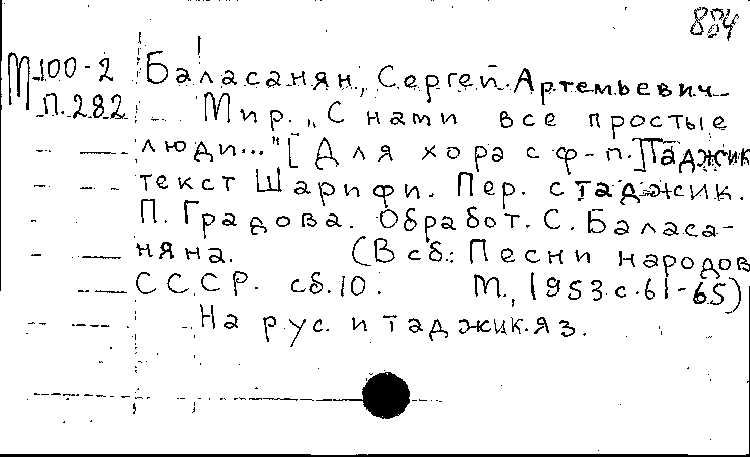 884
М100-2 Баласанян, Сергей Артемьевич
П.282 Мир. „С нами все простые
люди..." [Для хора с ф-п.] Таджик
текст Шарифи. Пер. с таджик.
П. Градова. Обработ. С. Баласа-
няна. (В сб.: Песни народов
СССР. сб.10. М., 1953. с.61-65)
На рус. и таджик.яз.